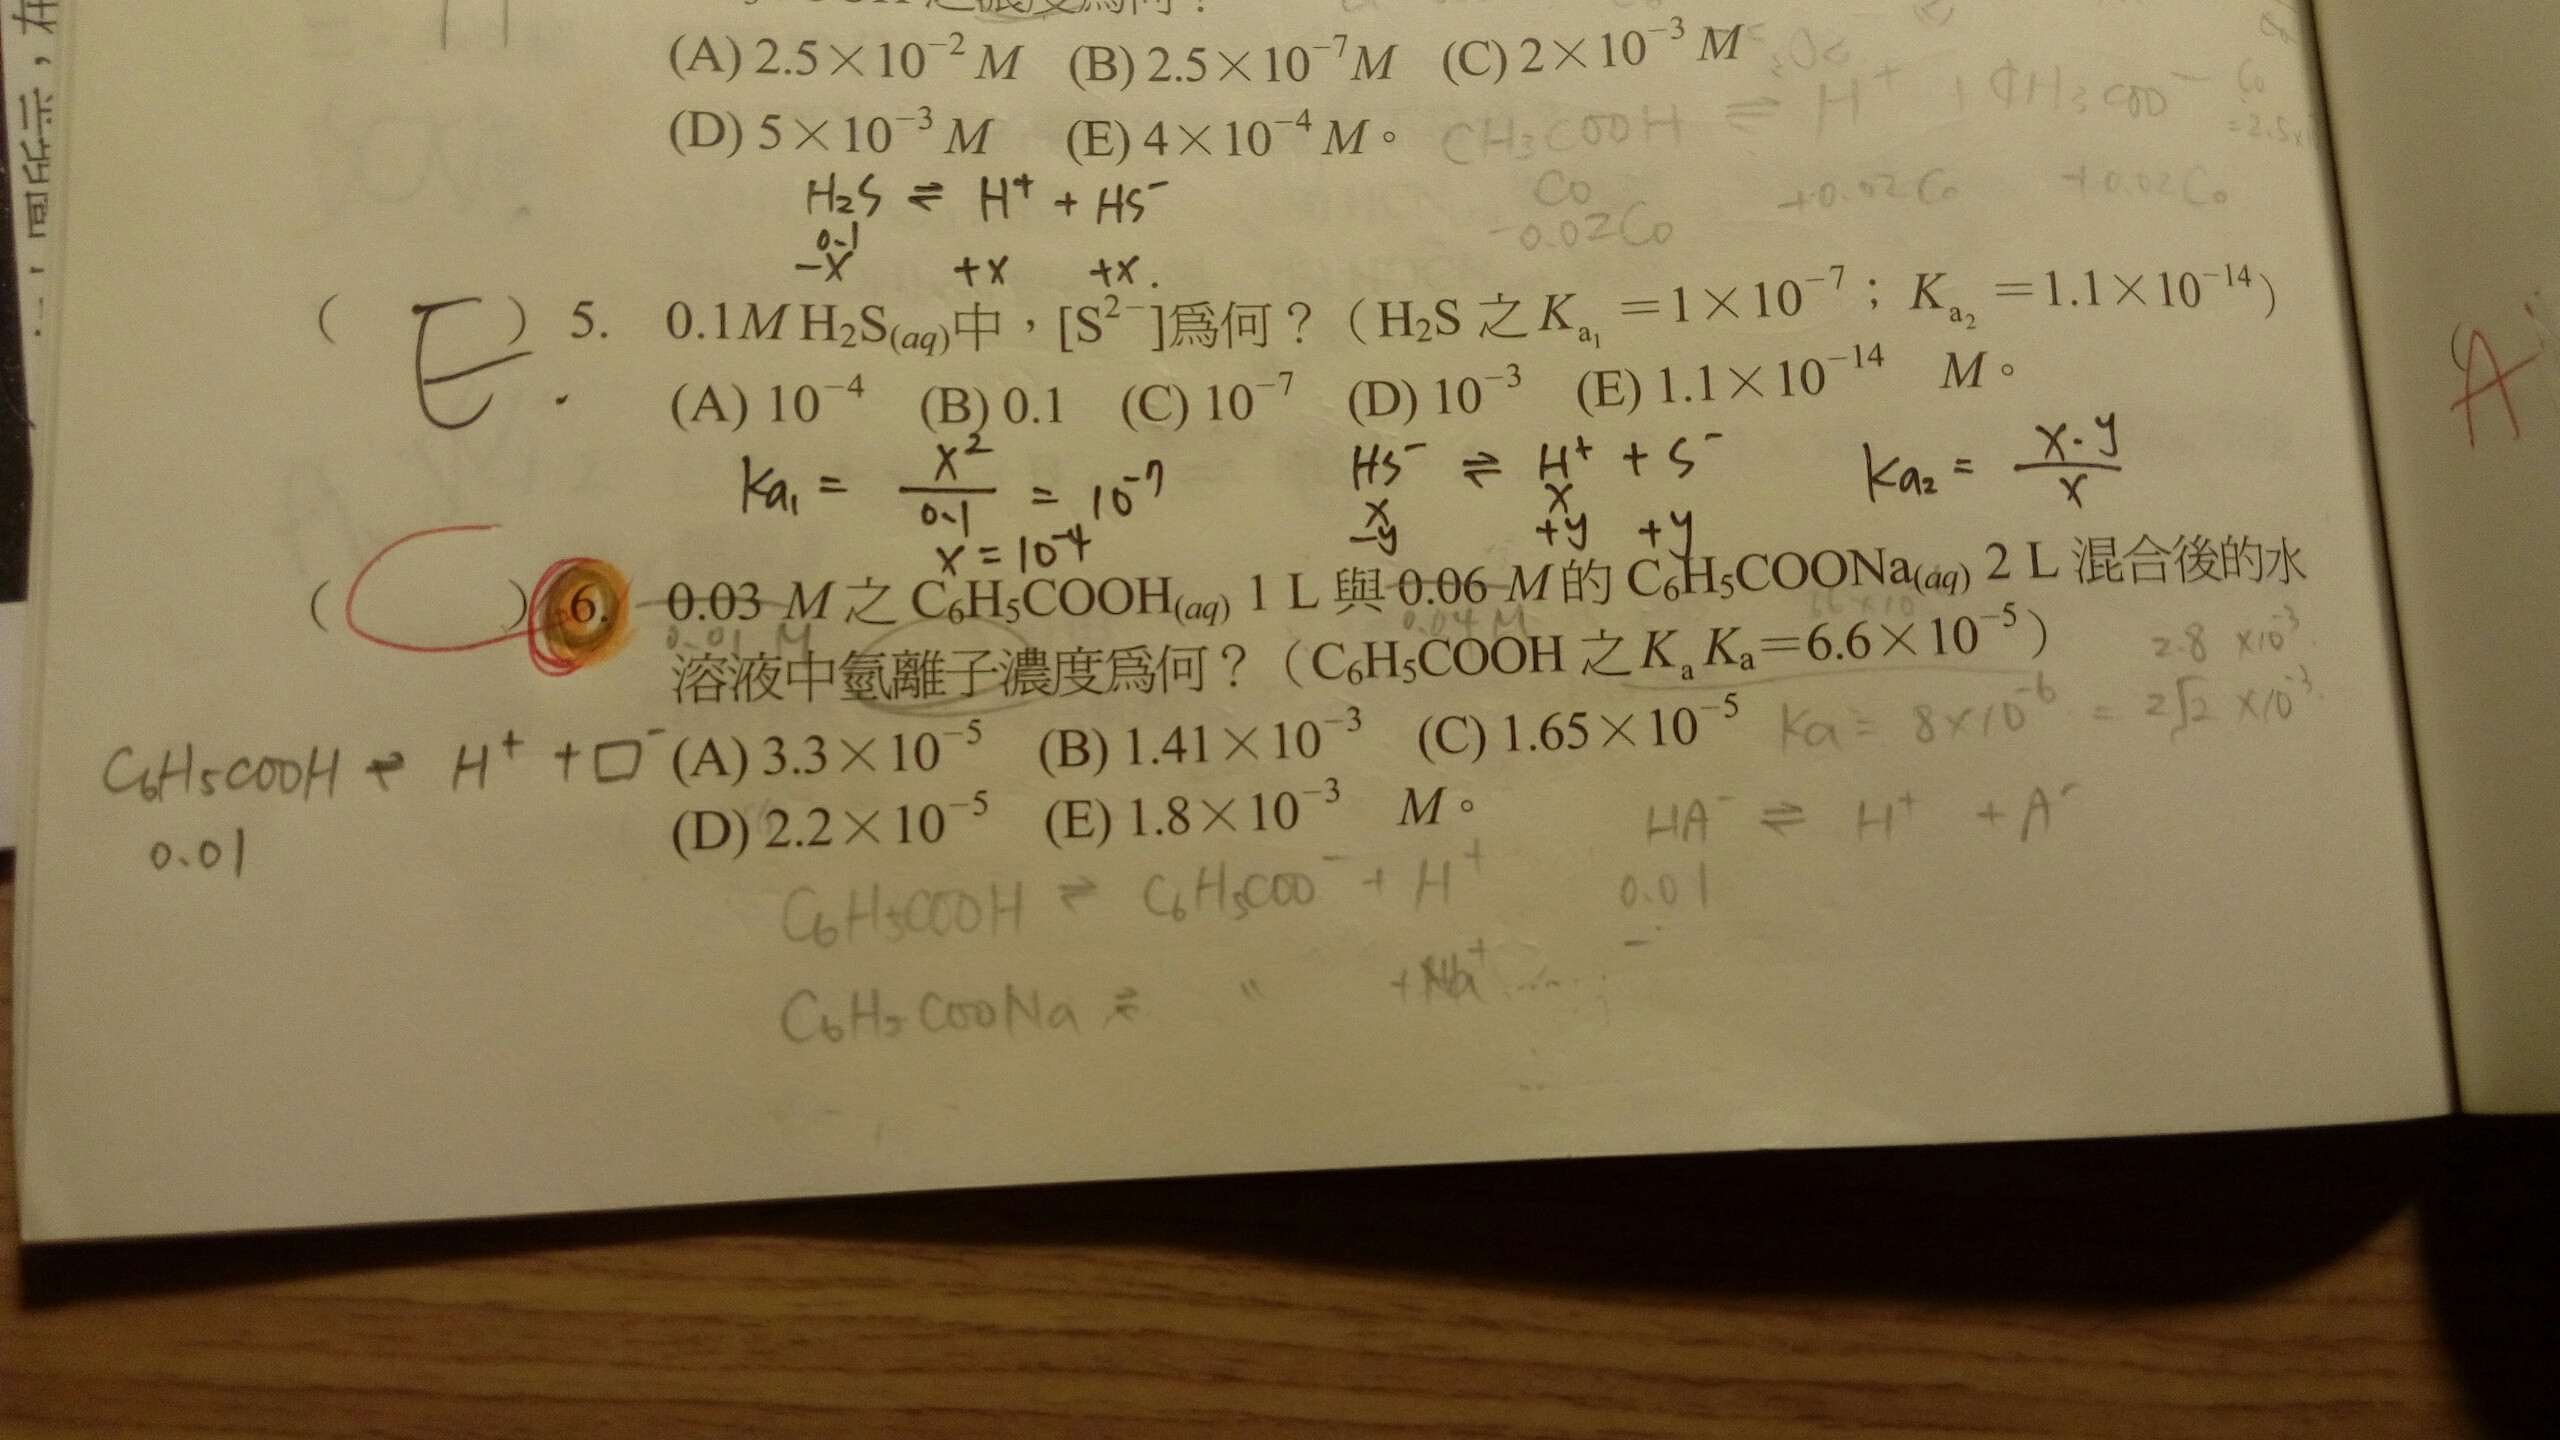 之濃度爲何？
(A) 2.5×10⁻² M (B) 2.5×10⁻⁷ M (C) 2×10⁻³ M
(D) 5×10⁻³ M (E) 4×10⁻⁴ M。
CH₃COOH ⇌ H⁺ + CH₃COO⁻
C₀ +0.02C₀ +0.02C₀
-0.02C₀
H₂S ⇌ H⁺ + HS⁻
0.1
-x +x +x.
( E ) 5. 0.1M H₂S(aq)中，[S²⁻]爲何？（H₂S 之 Kₐ₁ =1×10⁻⁷；Kₐ₂ =1.1×10⁻¹⁴）
(A) 10⁻⁴ (B) 0.1 (C) 10⁻⁷ (D) 10⁻³ (E) 1.1×10⁻¹⁴ M。
Ka₁ = x²/0.1 = 10⁻⁷
x = 10⁻⁴
HS⁻ ⇌ H⁺ + S⁻
x x
-y +y +y
Ka₂ = x·y/x
A
( C ) 6. 0.03 M 之 C₆H₅COOH(aq) 1 L 與 0.06 M 的 C₆H₅COONa(aq) 2 L 混合後的水
0.01 M 0.04 M
溶液中氫離子濃度爲何？（C₆H₅COOH 之 Kₐ Kₐ=6.6×10⁻⁵）
2.8 ×10⁻³
Ka = 8×10⁻⁶ = 2√2 ×10⁻³
(A) 3.3×10⁻⁵ (B) 1.41×10⁻³ (C) 1.65×10⁻⁵
(D) 2.2×10⁻⁵ (E) 1.8×10⁻³ M。
C₆H₅COOH ⇌ H⁺ + □⁻
0.01
HA⁻ ⇌ H⁺ + A⁻
0.01
-
C₆H₅COOH ⇌ C₆H₅COO⁻ + H⁺
C₆H₅COONa ⇌ 〃 + Na⁺